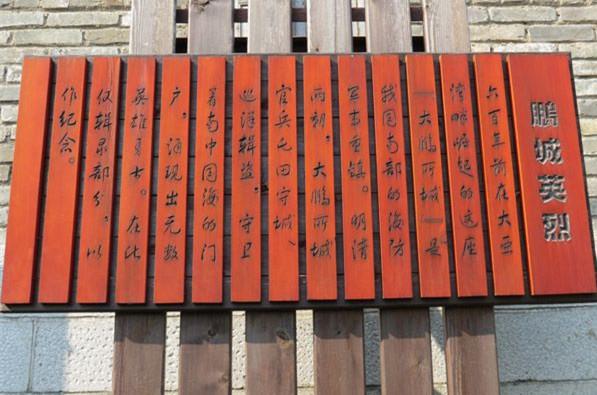 鹏城英烈
六百年前在大亚
湾畔崛起的这座
—大鹏所城—是
我国南部的海防
军事重镇。明清
两朝，大鹏所城
官兵屯田守城、
巡洋辑盗，守卫
着南中国海的门
户，涌现出无数
英雄勇士。在此
仅辑录部分，以
作纪念。